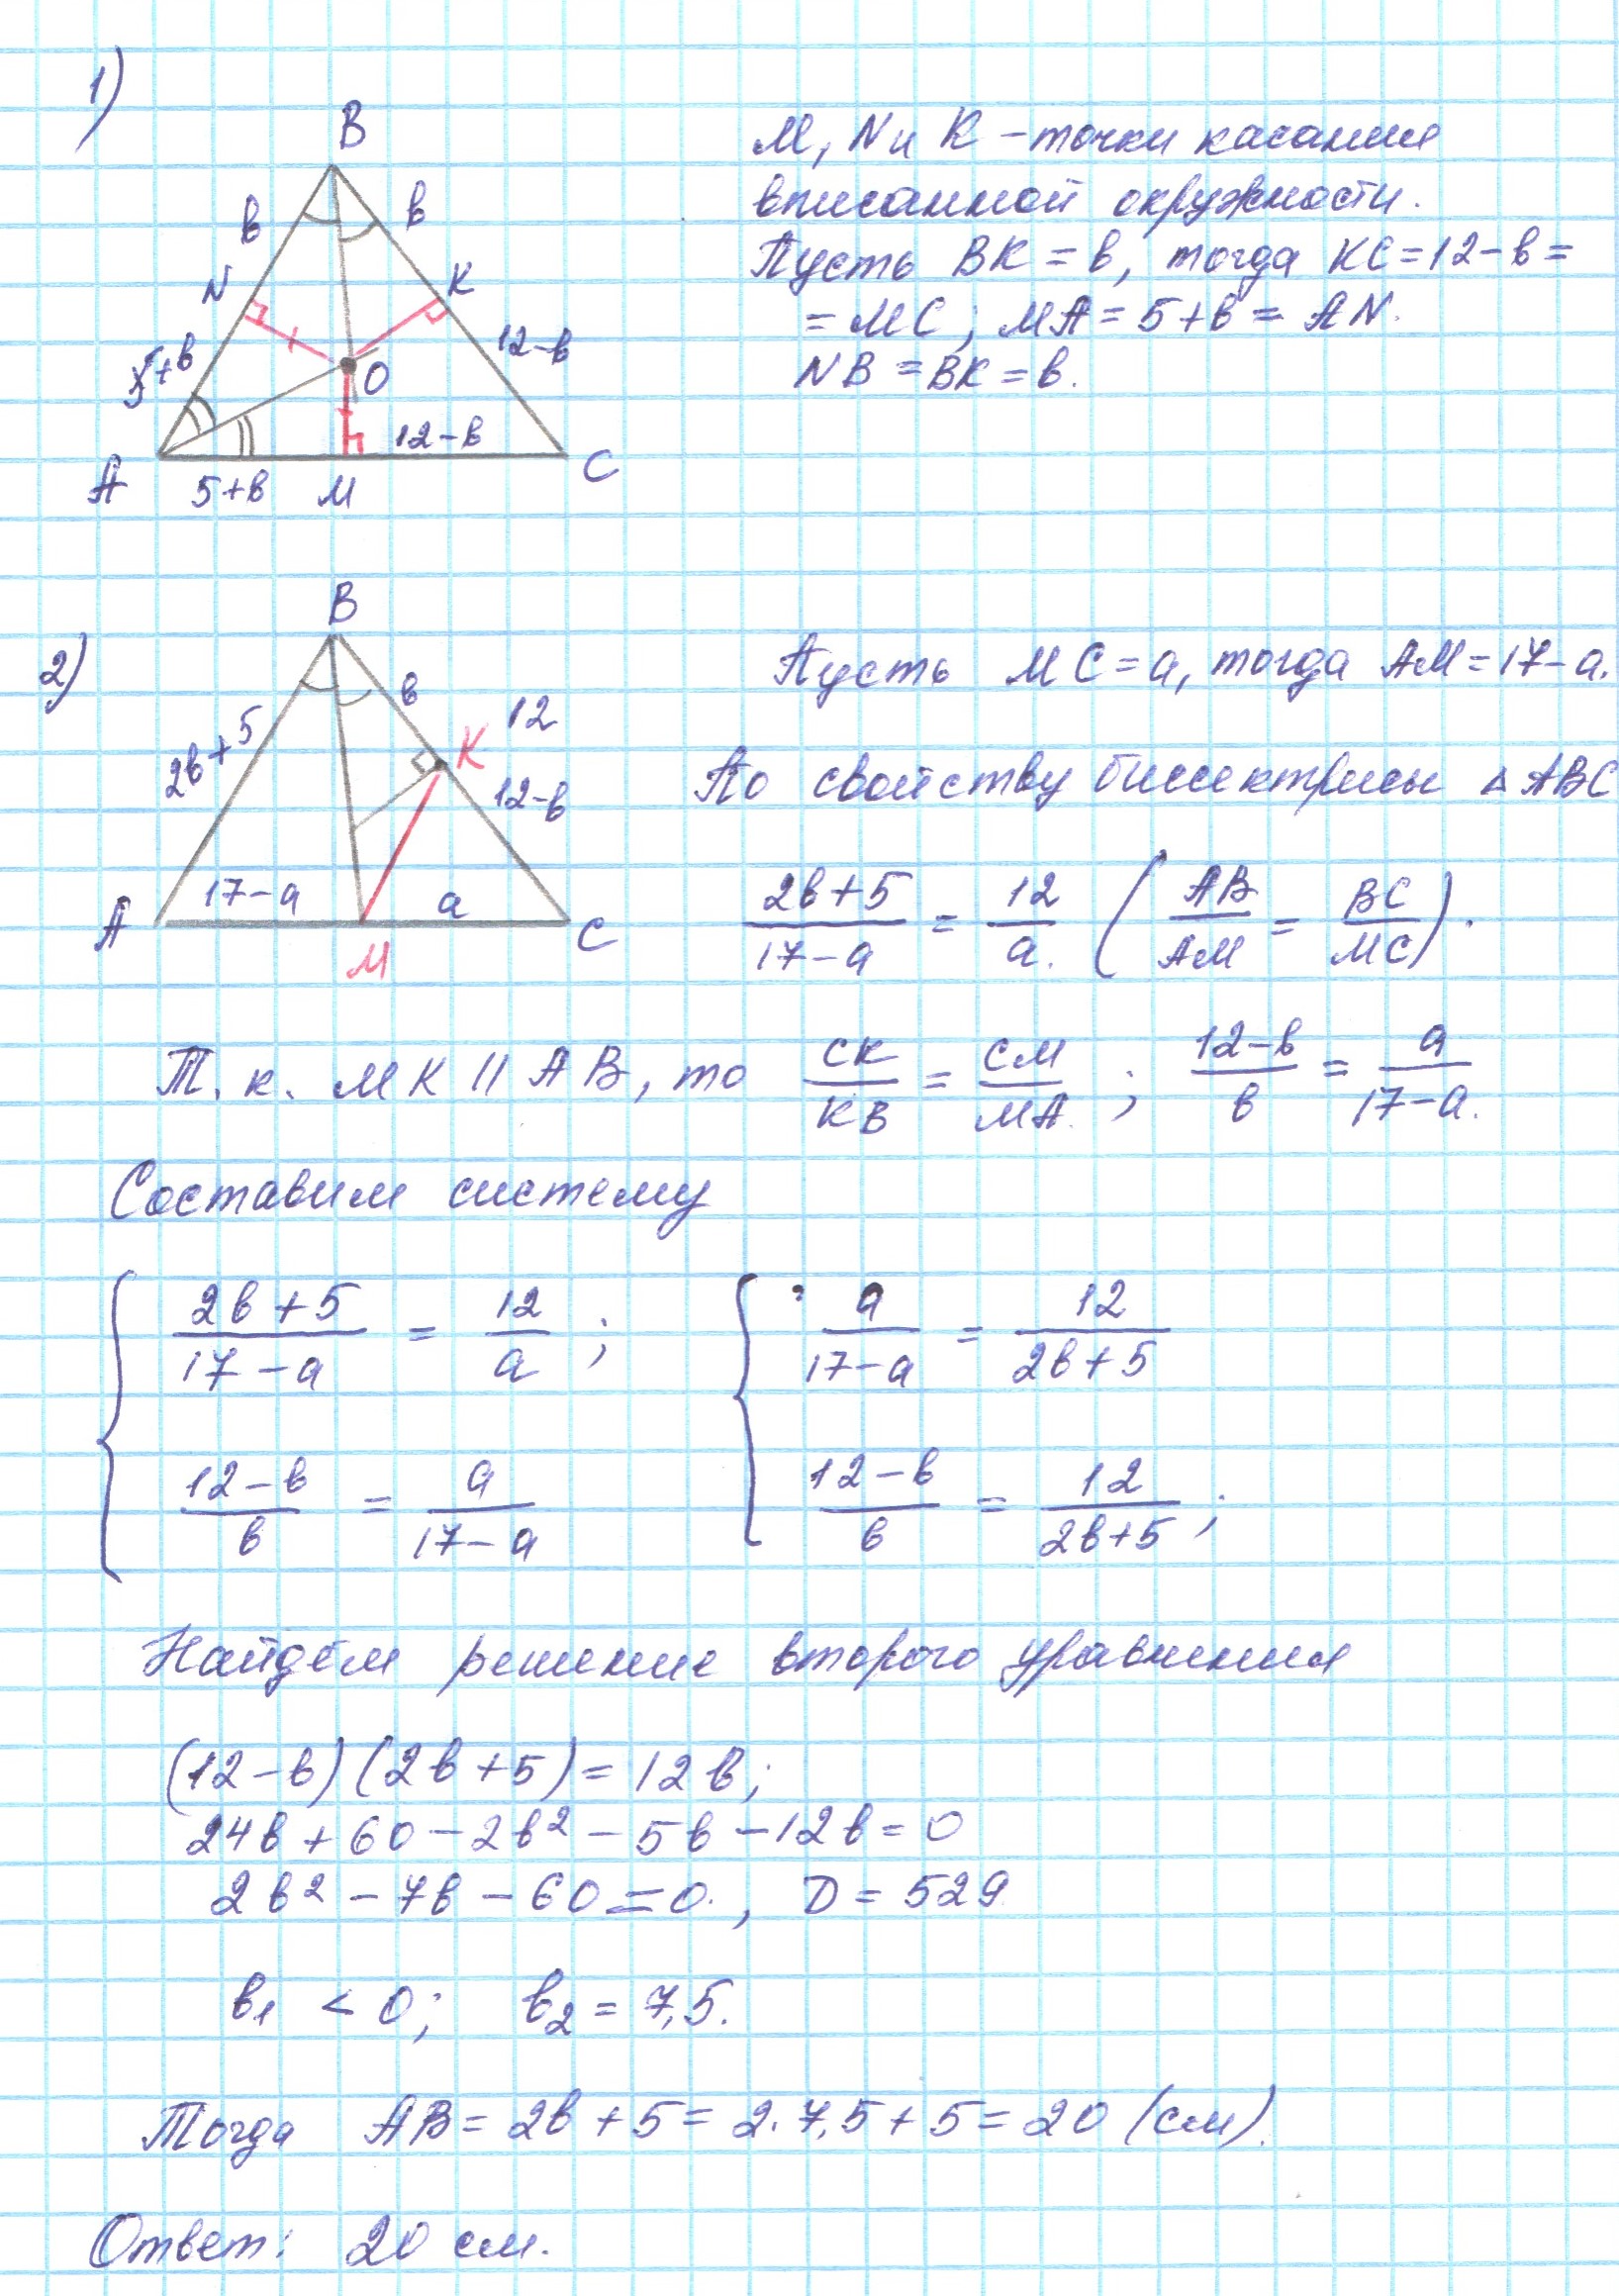 1)
B
в
в
N
K
5+в
12-в
O
12-в
A
5+в
M
C
M, N и K - точки касания
вписанной окружности.
Пусть BK = в, тогда KC = 12-в =
= MC; MA = 5+в = AN.
NB = BK = в.
2)
B
в
12
2в+5
K
12-в
17-a
a
A
M
C
Пусть MC = a, тогда AM = 17-a.
По свойству биссектрисы △ABC
(2в+5)/(17-a) = 12/a. (AB/AM = BC/MC).
Т. к. MK || AB, то CK/KB = CM/MA; (12-в)/в = a/(17-a).
Составим систему
{ (2в+5)/(17-a) = 12/a; { a/(17-a) = 12/(2в+5)
(12-в)/в = a/(17-a) (12-в)/в = 12/(2в+5);
Найдём решение второго уравнения
(12-в)(2в+5) = 12в;
24в + 60 - 2в² - 5в - 12в = 0
2в² - 7в - 60 = 0., D = 529
в₁ < 0; в₂ = 7,5.
Тогда AB = 2в + 5 = 2·7,5 + 5 = 20 (см).
Ответ: 20 см.